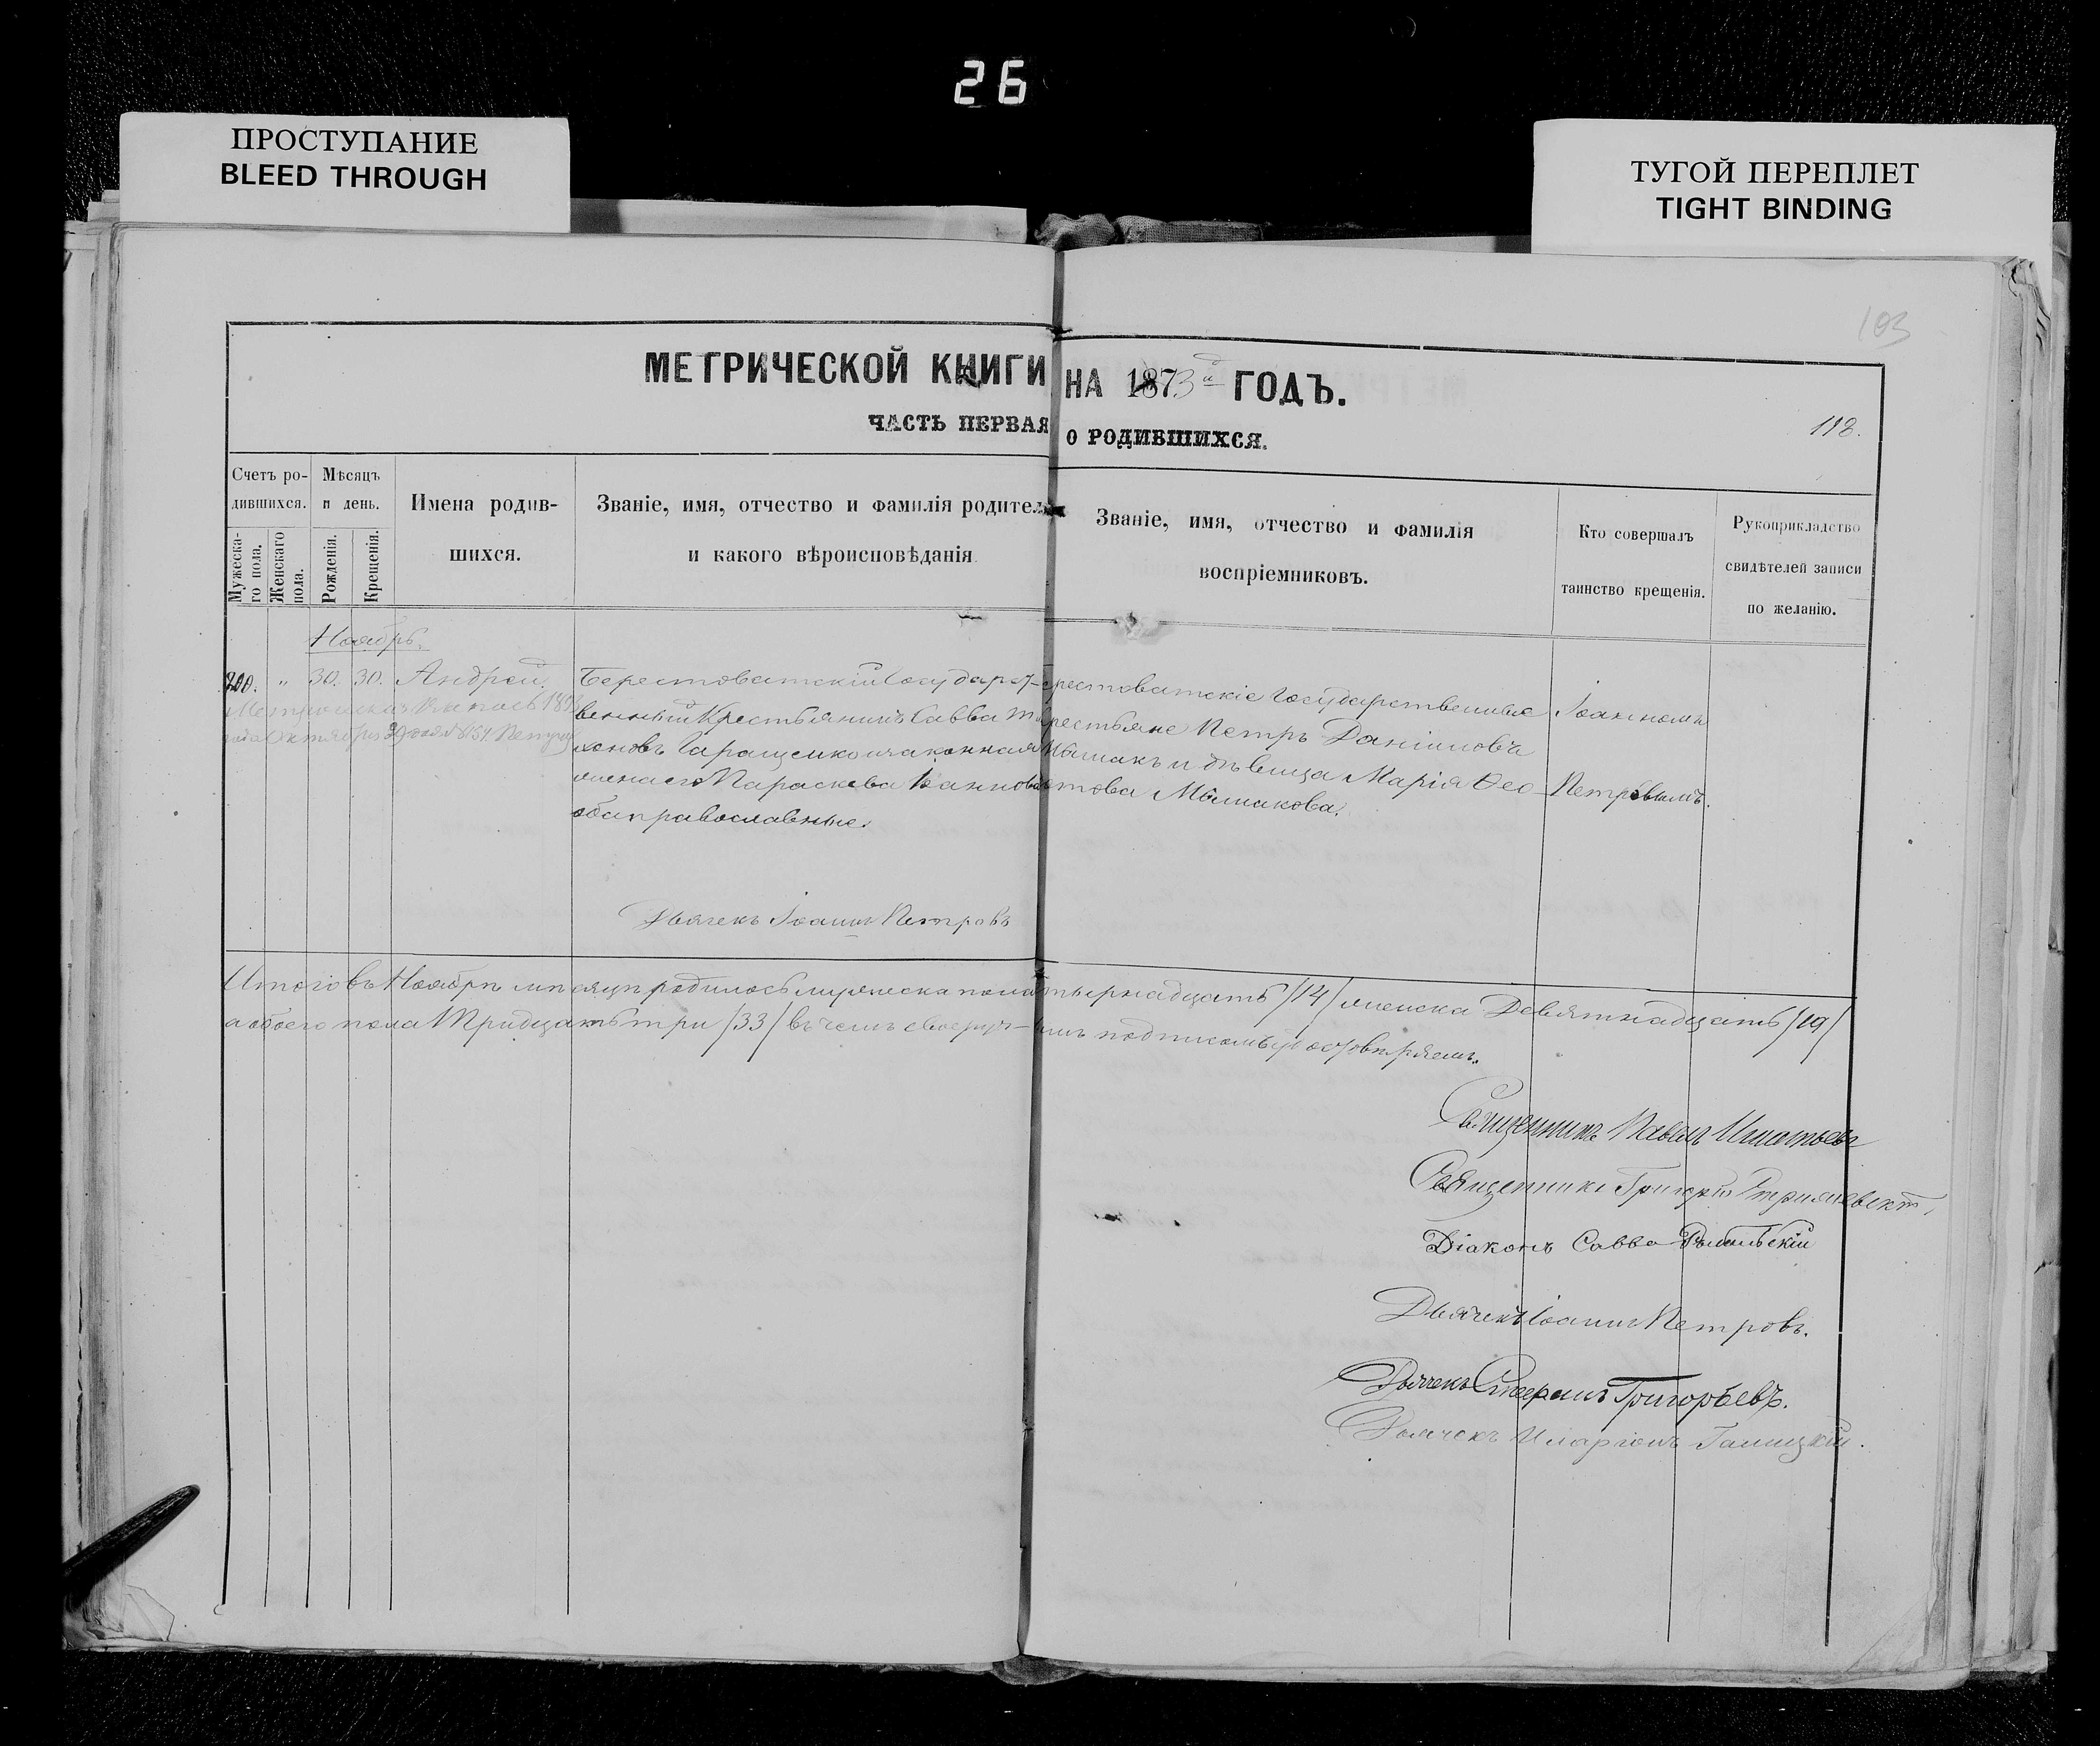 26
ПРОСТУПАНИЕ
BLEED THROUGH
ТУГОЙ ПЕРЕПЛЕТ
TIGHT BINDING
103
МЕТРИЧЕСКОЙ КНИГИ НА 1873й ГОДЪ.
ЧАСТЬ ПЕРВАЯ О РОДИВШИХСЯ.
118.
Счетъ ро-
дившихся.
Мужеска-
го пола.
Женскаго
пола.
Мѣсяцъ
и день.
Рожденія.
Крещенія.
Имена родив-
шихся.
Званіе, имя, отчество и фамилія родител
и какого вѣроисповѣданія
Званіе, имя, отчество и фамилія
воспріемниковъ.
Кто совершалъ
таинство крещенія.
Рукоприкладство
свидѣтелей записи
по желанію.
Ноябрь.
200. " 30. 30. Андрей.
Берестоватскій Государст-
венный Крестьянинъ Савва Ти
хоновъ Гаращенко и законная
жена его Параскева Іванова
оба православные.
рестоватскіе Государственные
рестьяне Петръ Даніиловъ
Мышакъ и дѣвица Марія Ѳео-
това Мышакова.
Іоанномъ
Петровымъ.
Дьячекъ Іоаннъ Петровъ
Итого въ Ноябрѣ мѣсяцѣ родилось мужеска пола тырнадцать /14/ женска Девятнадцать /19/
а обоего пола Тридцать три /33/ въ чемъ своеруч- нымъ подписомъ удостовѣряемъ.
Священникъ Павелъ Игнатьевъ
Священникъ Григорій
Діаконъ Савва
Дьячекъ Іоаннъ Петровъ.
Дьячекъ Стефанъ Григорьевъ.
Дьячекъ Иларіонъ Галицкій.